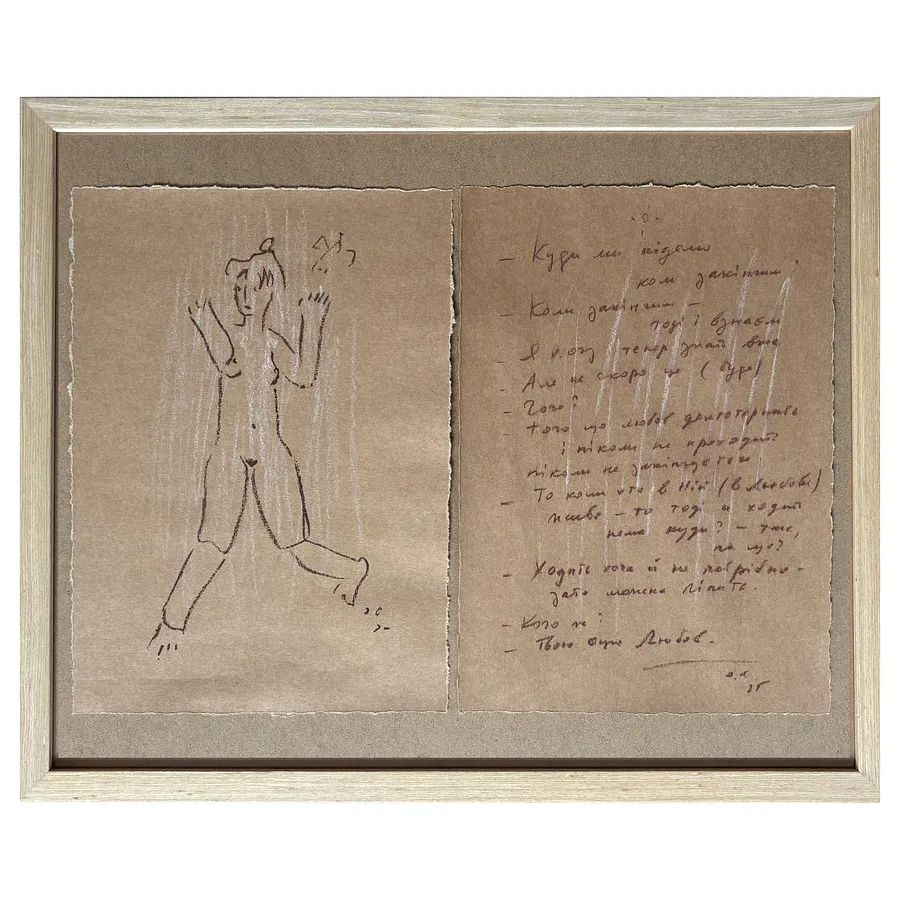 – Куди ми підемо
коли закінчим?
– Коли закінчим –
тоді і взнаєм
– Я хочу тепер знать вже
– Але не скоро це (буде)
– Чого?
– Того що любов довготерпить
і ніколи не проходить
ніколи не закінчується.
– То коли хто в Ній (в Любові)
живе – то тоді и ходить
нема куди? – так,
на що?
– Ходить хоча й не потрібно –
зато можна ліпить.
– Кого ж?
– Твою ону Любов.
25